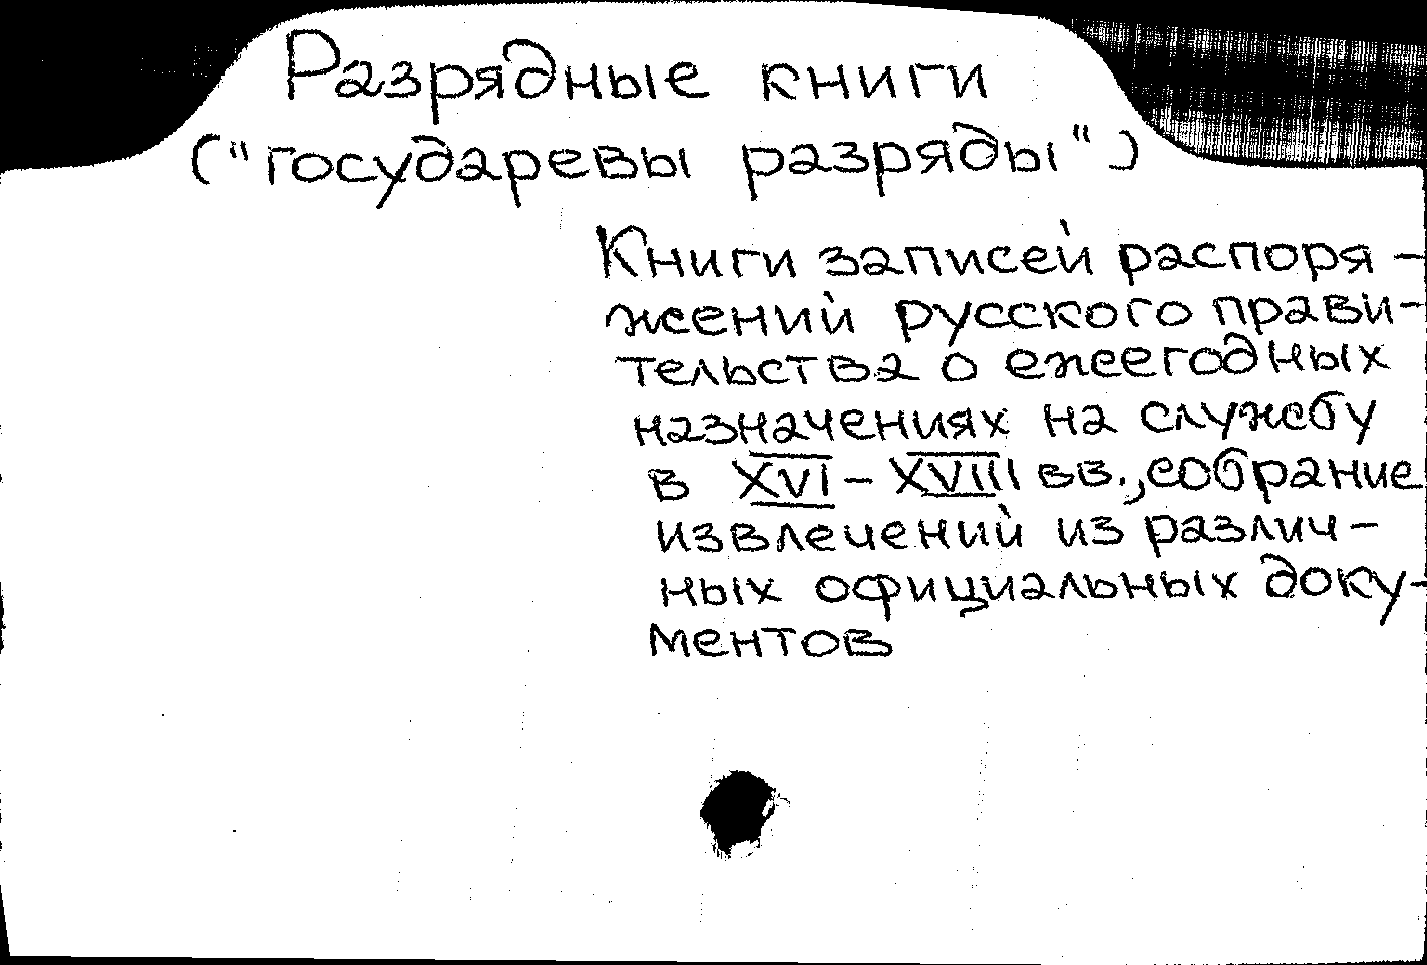 Разрядные книги
("государевы разряды")
Книги записей распоря-
жений русского прави-
тельства о ежегодных
назначениях на службу
в XVI-XVIII вв., собрание
извлечений из различ-
ных официальных доку-
ментов